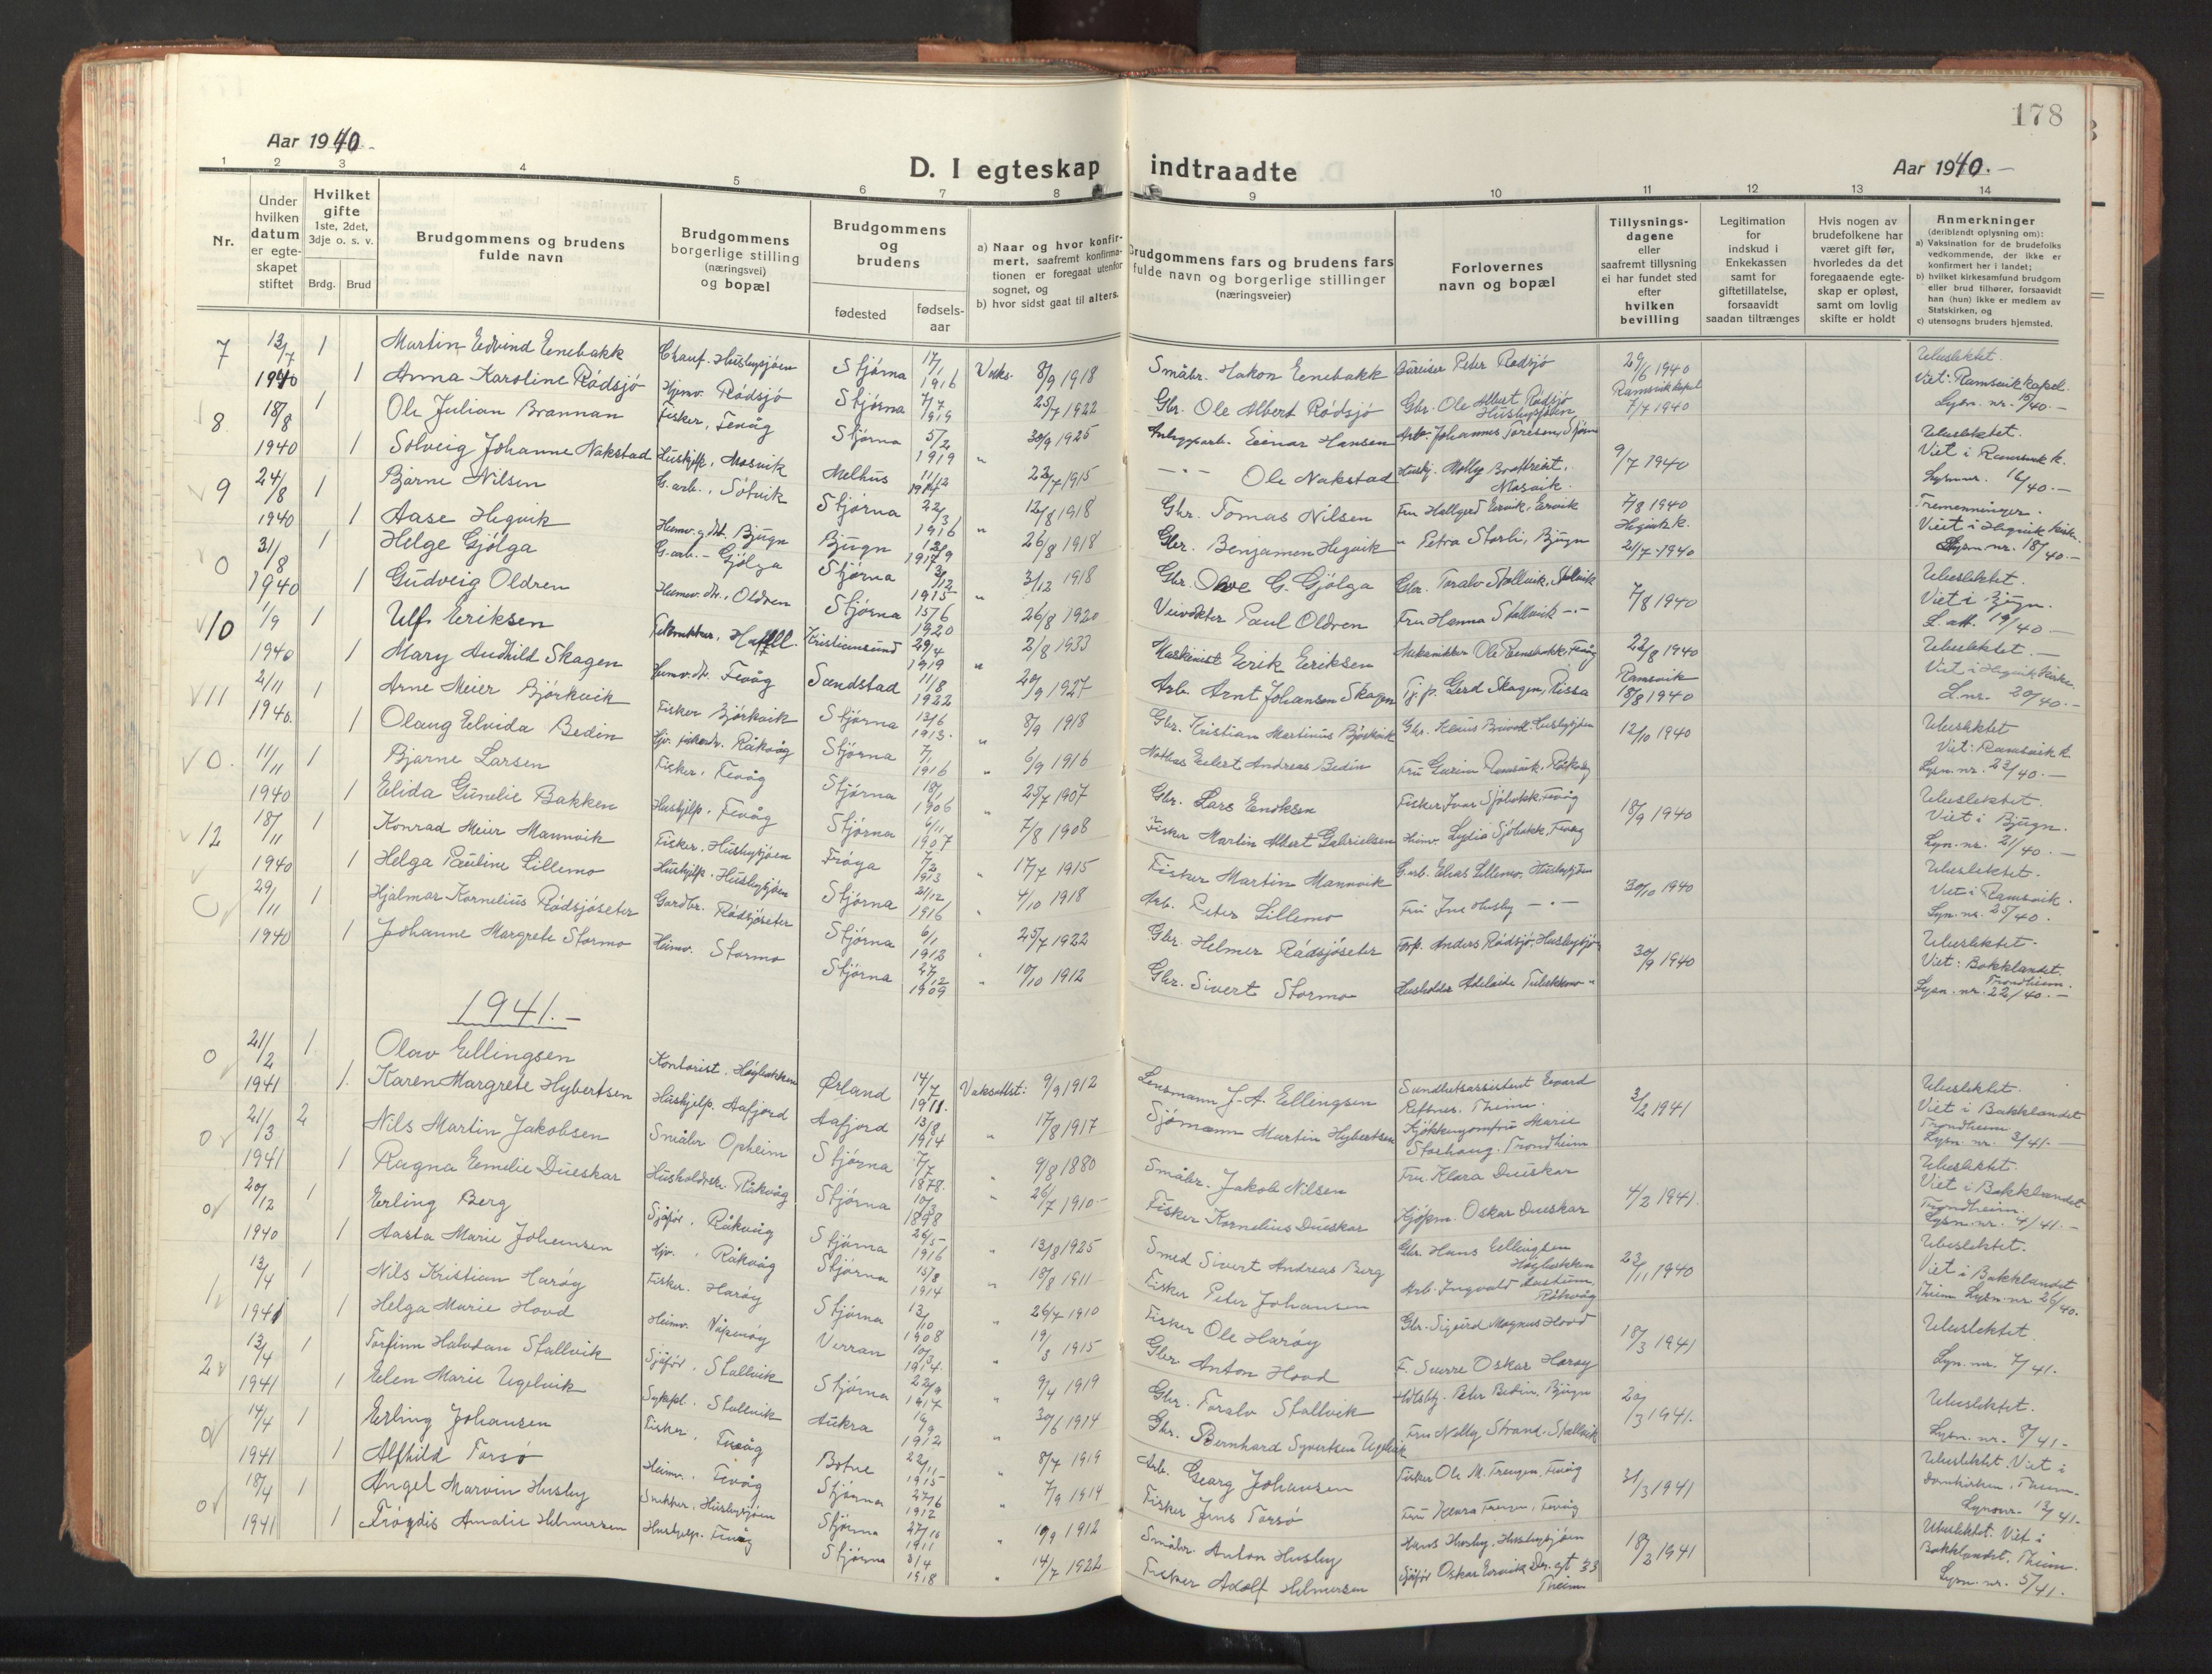 178
Aar 1940.
D. I egteskap indtraadte
Aar 1940.-
1 2 3 4 5 6 7 8 9 10 11 12 13 14
Nr.
Under hvilken datum er egteskapet stiftet
Hvilket gifte 1ste, 2det, 3dje o. s. v.
Brdg. Brud
Brudgommens og brudens fulde navn
Brudgommens borgerlige stilling (næringsvei) og bopæl
Brudgommens og brudens
fødested
fødsels-aar
a) Naar og hvor konfirmert, saafremt konfirmationen er foregaat utenfor sognet, og
b) hvor sidst gaat til alters.
Brudgommens fars og brudens fars fulde navn og borgerlige stillinger (næringsveier)
Forlovernes navn og bopæl
Tillysningsdagene eller saafremt tillysning ei har fundet sted efter hvilken bevilling
Legitimation for indskud i Enkekassen samt for giftetillatelse, forsaavidt saadan tiltrænges
Hvis nogen av brudefolkene har været gift før, hvorledes da det foregaaende egteskap er opløst, samt om lovlig skifte er holdt
Anmerkninger (deriblandt oplysning om):
a) Vaksination for de brudefolks vedkommende, der ikke er konfirmert her i landet;
b) hvilket kirkesamfund brudgom eller brud tilhører, forsaavidt han (hun) ikke er medlem av Statskirken, og
c) utensogns bruders hjemsted.
7 13/7 1 Martin Edvind Enebakk Chauf. Husbysjøen Stjørna 17/1 1916 Vaks. 8/9 1918 Småbr. Hakon Enebakk Peter Rødsjø 29/6 1940 Ubeslektet.
1940 1 Anna Karoline Rødsjø Hjemv. Rødsjø Stjørna 7/7 1919 25/7 1922 Gbr. Ole Albert Rødsjø Gbr. Ole Albert Rødsjø Husbysjøen Ramsvik kapel 7/7 1940 Viet: Ramsvik kapel. Lysn. nr. 15/40.-
8 18/8 1 Ole Julian Brannan Fisker, Fevåg Stjørna 5/2 1919 30/9 1925 Anleggsarb. Einar Hansen Arb. Johannes Toresen, Stjørna Ubeslektet.
1940 1 Solveig Johanne Nakstad Hushjelp, Mosvik Melhus 11/12 22/7 1915 Ole Nakstad Hushj. Molly Mosvik. 9/7 1940 Viet i Ramsvik k. Lysn. nr. 16/40.-
9 24/8 1 Bjarne Nilsen G.arb., Sørvik Stjørna 22/3 1916 12/8 1918 Gbr. Tomas Nilsen Fru Hallgerd Ervik, Ervik 7/8 1940 Tremenninger.
1940 1 Aase Hegvik Hjemv. g.dt. Bjugn Bjugn 26/8 1918 Gbr. Benjamen Hegvik " Petra Storli, Bjugn Hegvik k. 21/7-1940 Viet i Hegvik kirke. Lysn. nr. 18/40.-
0 31/8 1 Helge Gjølga G.arb. - Gjølga Stjørna 3/12 1915 3/12 1918 Gbr. Olve G. Gjølga Gbr. Toralv Stallvik, Stallvik Ubeslektet.
1940 1 Gudveig Oldren Heimev. dt., Oldren Stjørna 15/6 1920 26/8 1920 Veivokter Paul Oldren Fru Hanna Stallvik -"- 7/8 1940 Viet i Bjugn. L. att. 19/40 -
10 1/9 1 Ulf Eriksen Kristiansund 29/4 1919 2/8 1933 Maskinist Erik Eriksen Mekanikker Ole Ramsbakk, Fevåg 22/8 1940 Ubeslektet.-
1940 1 Mary Audhild Skagen Heimv. dt. Fevåg Sandstad 11/8 1922 20/9 1927 Arb. Arnt Johansen Skagen Tj.p. Gerd Skagen, Rissa Ramsvik 18/8 1940 Viet i Hegvik kirke. L. nr. 20/40.-
11 2/11 1 Arne Meier Bjørkvik Fisker Bjørkvik Stjørna 12/6 1913. 8/9 1918 Gbr. Kristian Martinus Bjørkvik 12/10 1940 Ubeslektet
1940. 1 Olaug Elvida Bedin Råkvåg Stjørna 7/1 1916 6/9 1916 Eilert Andreas Bedin Fru Ramsvik, Råkvåg Viet: Ramsvik k. Lysn. nr. 23/40.-
0. 11/11 1 Bjarne Larsen Fisker, Fevåg Stjørna 18/1 1906 25/7 1907 Gbr. Lars Fisker Ivar Sjøbakk, Fevåg 18/9 1940 Ubeslektet.
1940 1 Elida Gunelie Bakken Hushjelp, Fevåg Stjørna 6/11 1907 7/8 1908 Fisker Martin Albert Gabrielsen Heimv. Lydia Sjøbakk, Fevåg Viet i Bjugn. Lyn. nr. 21/40.-
12 18/11 1 Konrad Meier Mannvik Fisker, Husbysjøen Frøya 7/2 1913 17/7 1915 Fisker Martin Mannvik G.arb. Elias Lillemo, Husbysjøen 30/10 1940 Ubeslektet.
1940 1 Helga Pauline Lillemo Hushjelp, Husbysjøen Stjørna 21/12 1916 4/10 1918 Arb. Peter Lillemo Fru Ine Husby -"- Viet i Ramsvik. Lyn. nr. 25/40.
0 29/11 1 Hjalmar Kornelius Rødsjøseter Gardbr. Rødsjøseter Stjørna 6/1 1912 25/7 1922 Gbr. Helmer Rødsjøseter Forp. Anders Rødsjø, Husbysjø 30/9 1940 Ubeslektet.
1940 1 Johanne Margrete Stormo Heimv. Stormo Stjørna 27/12 1909 10/10 1912 Gbr. Sivert Stormo Husholder Adelaide Viet: Bakklandet. Trondheim. Lysn. nr. 22/40.-
1941.-
0 21/2 1 Olav Ellingsen Kontorist, Høybakken Ørland 14/7 1911. Vaks.attst: 9/9 1912 Lensmann J. A. Ellingsen Sundhetsassistent Edvard Reftnes, Theim. 3/2 1941 Ubeslektet.
1941 1. Karen Margrete Hybertsen Hushjelp, Aafjord Aafjord 13/8 1914 " 17/8 1917 Sjømann Martin Hybertsen Kjøkkenjomfru Marie Storhaug, Trondheim Viet i Bakklandet Trondheim. Lysn. nr. 3/41.-
0 21/3 2 Nils Martin Jakobsen Småbr Opheim Stjørna 7/7 1878. " 9/8 1880 Småbr. Jakob Nilsen Fru Klara Dueskar 4/2 1941. Ubeslektet.
1941 1 Ragna Emelie Dueskar Husholdrske Råkvåg Stjørna 10/3 1898 " 26/7 1910.- Fisker Kornelius Dueskar Kjøpm. Oskar Dueskar Viet i Bakklandet Trondheim. Lysn. nr. 4/41.-
0 20/12 1 Erling Berg Sjåfør, Råkvåg Stjørna 26/5 1916 " 13/8 1925 Smed Sivert Andreas Berg Gbr. Hans Ellingsen Høybakken 23/11 1940 Ubeslektet.
1940 1 Aasta Marie Johansen Hjv., Råkvåg Stjørna 15/8 1914 " 18/8 1911 Fisker Peter Johansen Arb. Ingvald Austum, Råkvåg Viet i Bakklandet Theim Lysn. nr. 26/40.
1 13/4 1 Nils Kristian Harøy Fisker. Harøy Stjørna 13/10 1908 " 26/7 1910 Fisker Ole Harøy Gbr. Sigurd Magnus Hovd 18/3 1941 Ubeslektet.
1941 1 Helga Marie Hovd Heimv. Våpnøy Verran 10/3 1914. " 19/3 1915 Gbr Anton Hovd F. Sverre Oskar Harøy Lyn. nr. 7/41.
2 13/4 1 Torfinn Halvdan Stallvik Sjåfør, Stallvik Stjørna 22/9 1917 " 9/4 1919 Gbr. Toralv Stallvik Peter Bedin, Bjugn 20/3 1941. Ubeslektet.
1941 1 Elen Marie Ugelvik Sykepl. Stallvik Aukra 19/9 1912 " 30/6 1914 Gbr. Bernhard Syvertsen Ugelvik Fru Nelly Strand, Stallvik Lysn. nr. 8/41.-
0 14/4 1 Erling Johansen Fisker, Fevåg Botne 22/11 1915 " 8/7 1919 Arb. Georg Johansen Fisker Ole M. Trengen, Fevåg 31/3 1941 Ubeslektet. Viet i
1941 1 Alfhild Torsø Heimv., Fevåg Stjørna 27/6 1912 " 7/9 1914 Fisker Jens Torsø Fru Klara Fevåg Domkirken, Theim. Lysn.nr. 13/41.-
0 18/4 1 Angel Marvin Husby Snekker, Husbysjøen Stjørna 27/10 1911 " 10/9 1912 Småbr. Anton Husby Hans Husby, Husbysjøen 18/2 1941 Ubeslektet. Viet i
1941 1 Frøydis Amalie Helmersen Hushjelp. Fevåg Stjørna 3/4 1918 " 14/7 1922 Fisker Adolf Helmersen Sjåfør Oskar Ervik 33 Theim Bakklandet, Theim. Lysn. nr. 5/41.